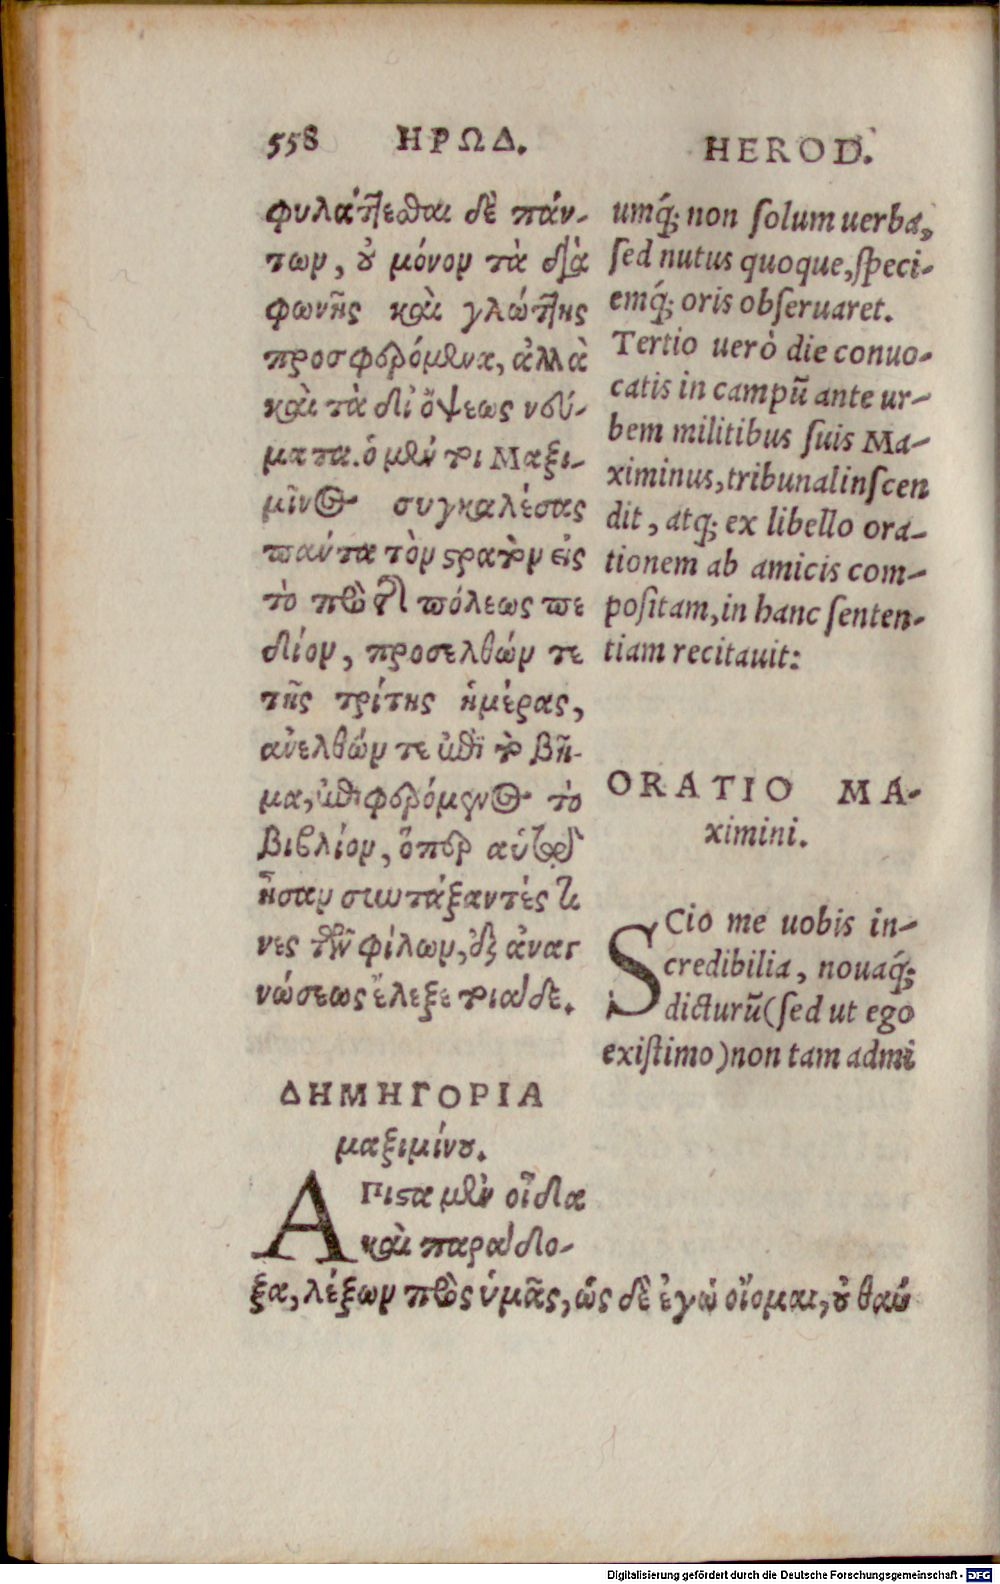 558 ΗΡΩΔ.
φυλάττεσθαι δὲ πάν-
των, ȣ μόνον τὰ διὰ
φωνῆς καὶ γλώττης
προσφερόμενα, ἀλλὰ
καὶ τὰ δι ὄψεως νεύ-
ματα. ὁ μὲν τοι Μαξι-
μῖνος συγκαλέσας
πάντα τὸν ϛρατὸν εἰς
τὸ πρὸ τῆς πόλεως πε
δίον, προσελθών τε
τῆς τρίτης ἡμέρας,
ἀνελθών τε ἐπὶ τὸ βῆ-
μα, ἐπιφερόμενος τὸ
βιβλίον, ὅπερ αὐτῷ
ἦσαν συντάξαντές τι
νες τῶν φίλων, ἐξ ἀναγ
νώσεως ἔλεξε τοιάδε.
ΔΗΜΗΓΟΡΙΑ
μαξιμίνȣ.
ΑΠιϛα μὲν οἶδα
καὶ παράδο-
ξα, λέξων πρὸς ὑμᾶς, ὡς δὲ ἐγὼ οἴομαι, ȣ θαύ
HEROD.
umq́; non ſolum uerba,
ſed nutus quoque, ſpeci-
emq́; oris obſeruaret.
Tertio uerò die conuo-
catis in campũ ante ur-
bem militibus ſuis Ma-
ximinus, tribunal inſcen
dit, atq; ex libello ora-
tionem ab amicis com-
poſitam, in hanc ſenten-
tiam recitauit:
ORATIO MA-
ximini.
SCio me uobis in-
credibilia, nouaq́;
dicturũ (ſed ut ego
exiſtimo) non tam admi
Digitalisierung gefördert durch die Deutsche Forschungsgemeinschaft - DFG